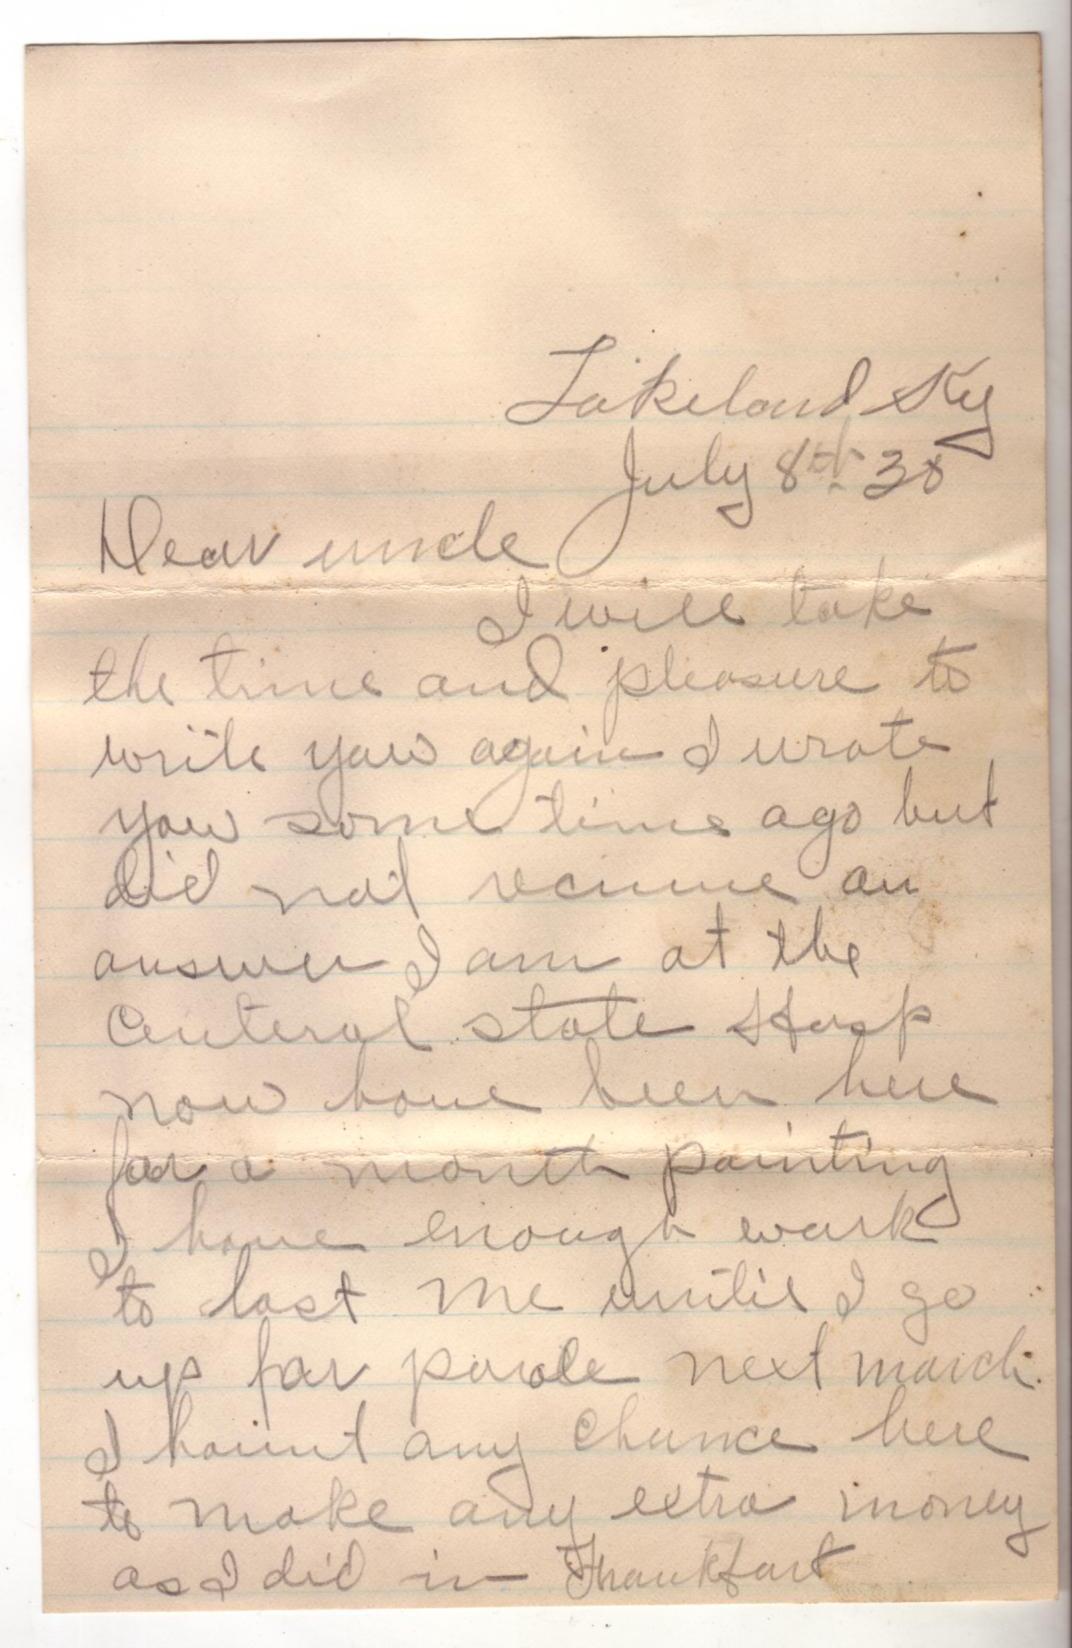 Lakeland Ky
July 8th 38
Dear uncle
I will take
the time and pleasure to
write you again I wrote
you some time ago but
did not recieve an
answer I am at the
Centeral state Hosp
now have been here
for a month painting
I have enough work
to last me until I go
up for parole next march.
I haint any chance here
to make any extra money
as I did in Frankfort